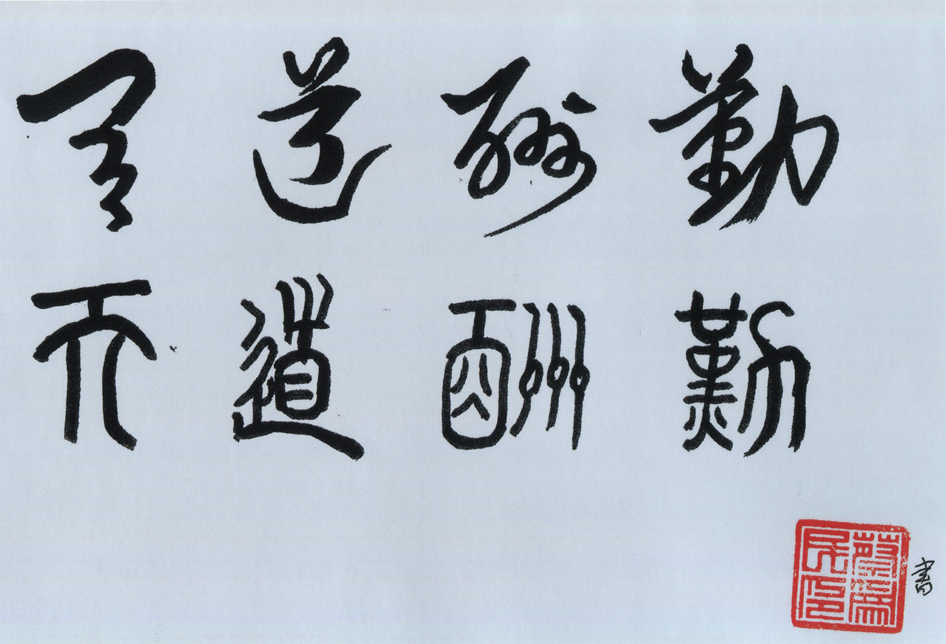 天道酬勤
天道酬勤
書